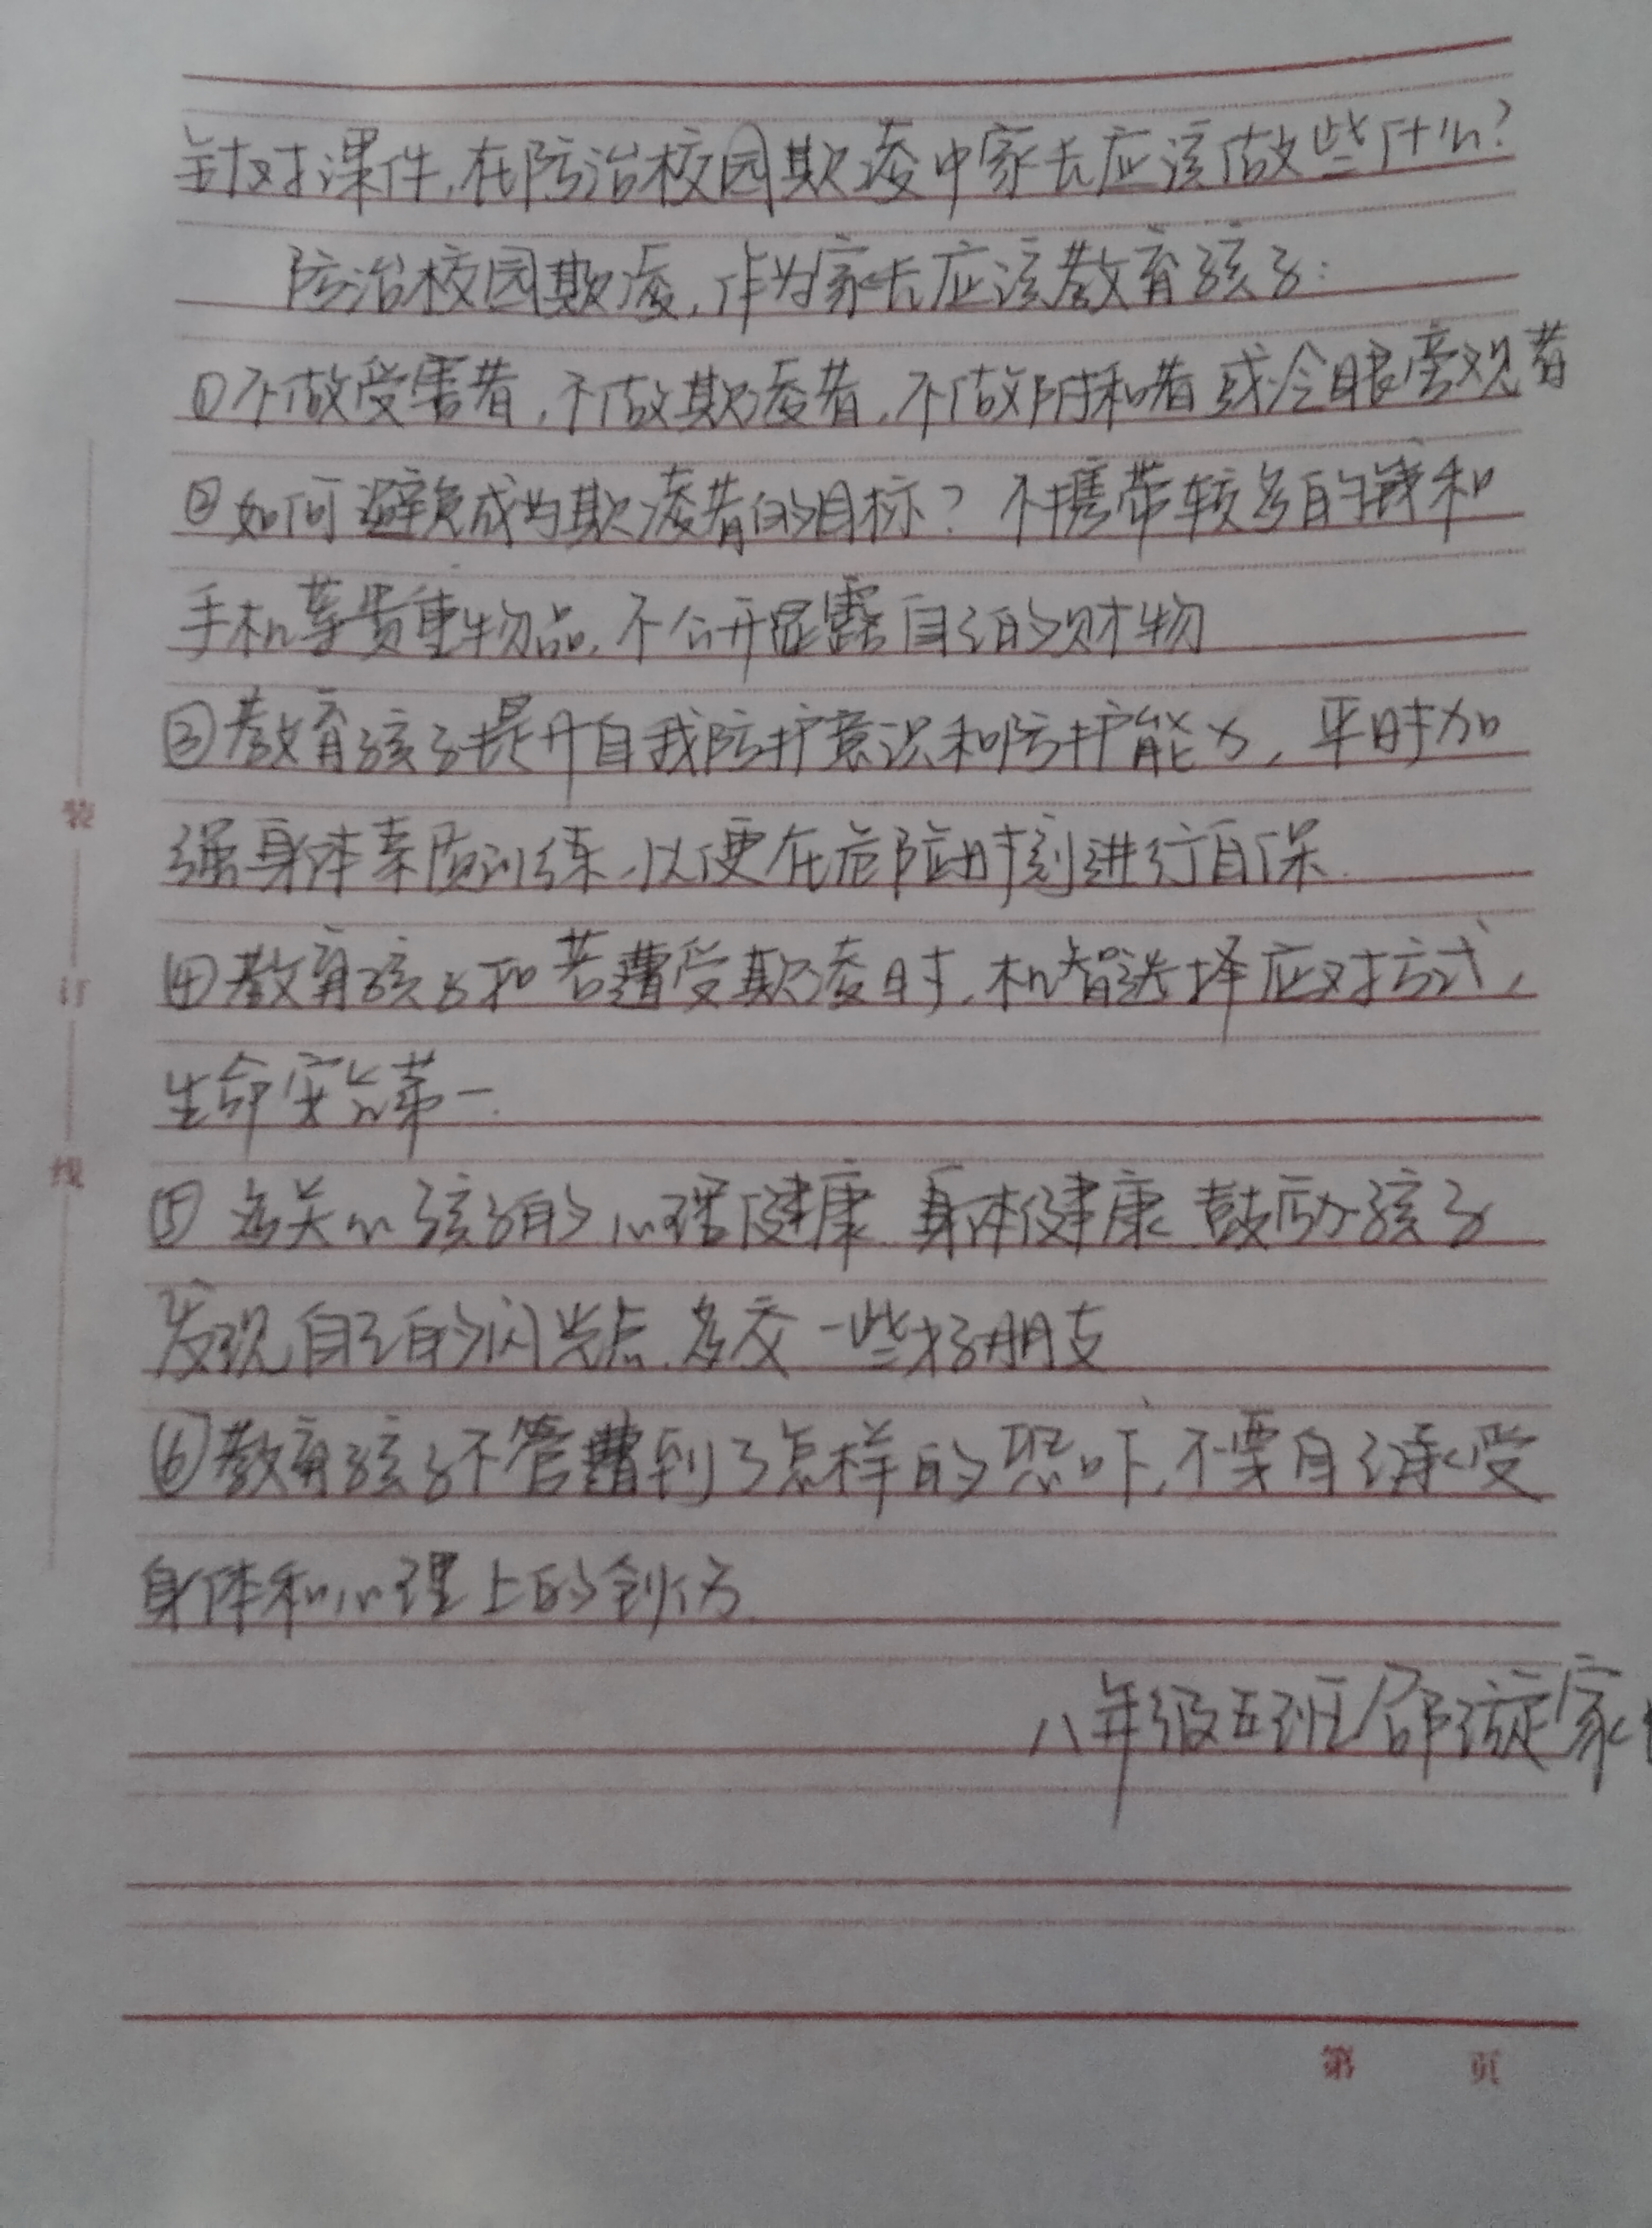 针对课件,在防治校园欺凌中家长应该做些什么?
防治校园欺凌,作为家长应该教育孩子:
①不做受害者,不做欺凌者,不做附和者或冷眼旁观者
②如何避免成为欺凌者的目标?不携带较多的钱和
手机等贵重物品,不公开显露自己的财物
③教育孩子提升自我防护意识和防护能力,平时加
强身体素质训练,以便在危险时刻进行自保.
④教育孩子和若遭受欺凌时,机智选择应对方式,
生命安全第一.
⑤多关心孩子的心理健康.身体健康.鼓励孩子
发现自己的闪光点.多交一些好朋友
⑥教育孩子不管遭到了怎样的恐吓,不要自己承受
身体和心理上的创伤.
八年级五班 邵 家
装
订
线
第 页